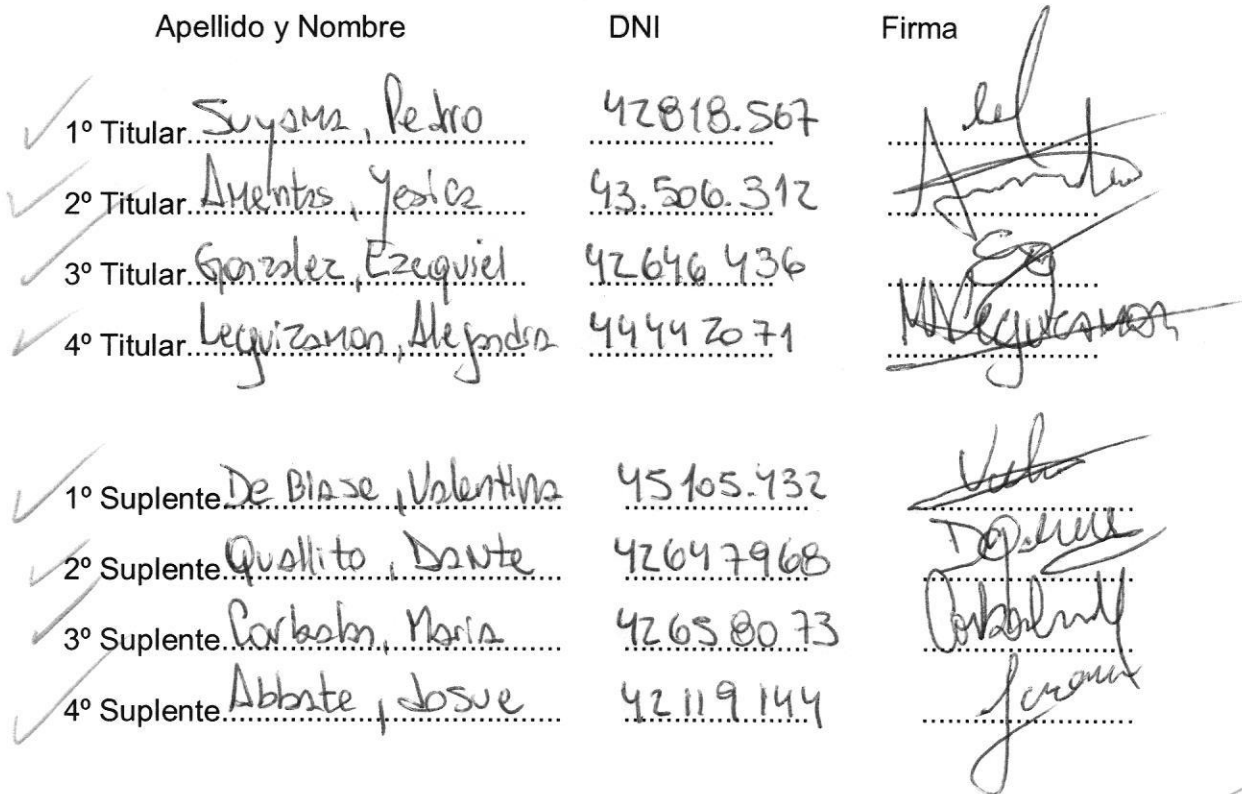 Apellido y Nombre DNI Firma
1º Titular Suyama, Pedro 42818.567
2º Titular Amentas, Yesica 43.506.312
3º Titular Gonzalez, Ezequiel 42646436
4º Titular Leguizamon, Alejandra 44442071 Leguizamon
1º Suplente De Biase, Valentina 45105.432
2º Suplente Quallito, Dante 42647968
3º Suplente Maria 42658073
4º Suplente Abbate, Josue 42119144